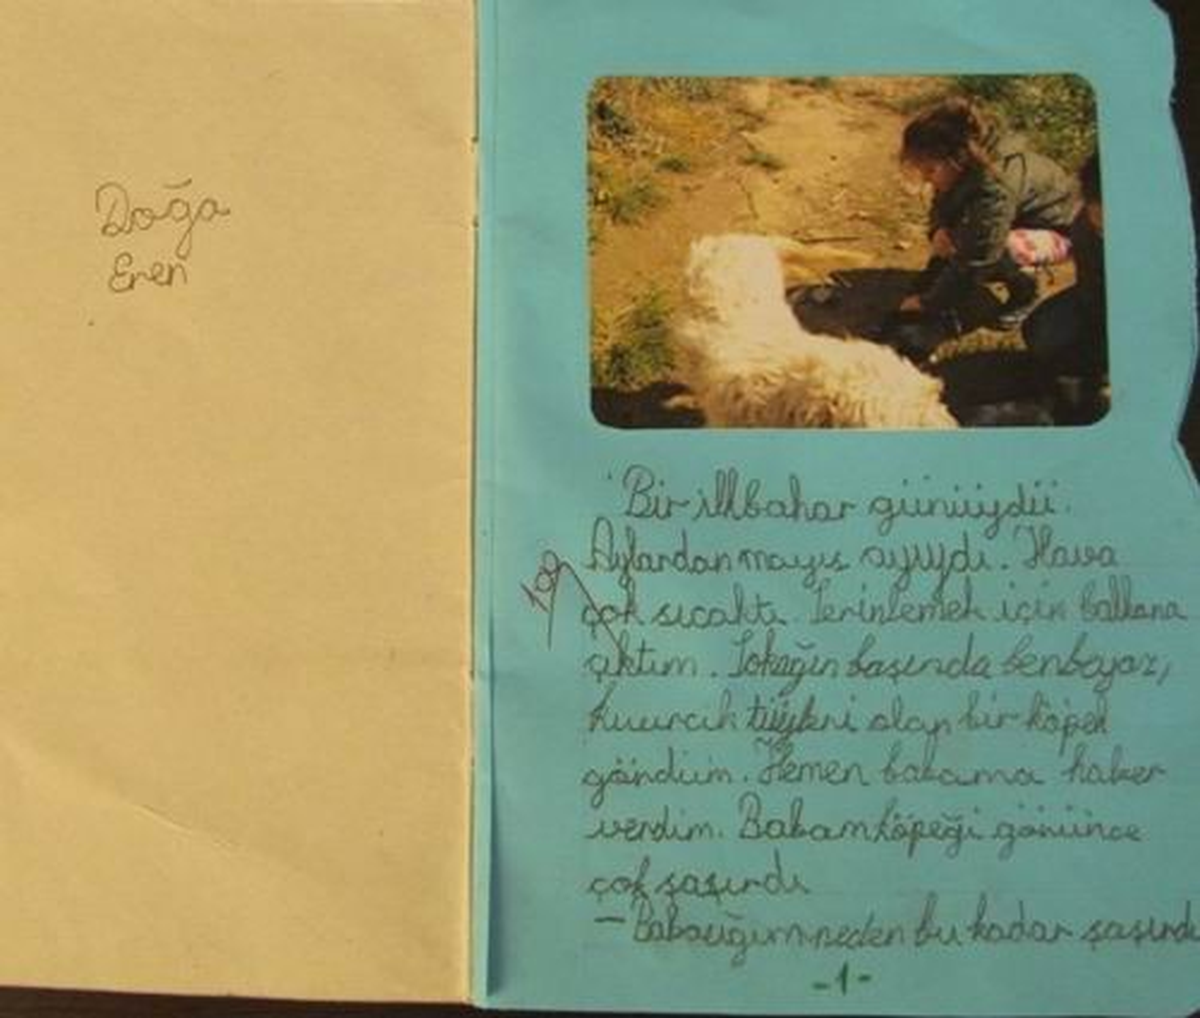 Doğa
Eren
Bir ilkbahar günüydü.
Aylardan mayıs ayıydı. Hava
çok sıcaktı. Serinlemek için balkona
çıktım. Sokağın başında benbeyaz,
kıvırcık tüyleri olan bir köpek
gördüm. Hemen babama haber
verdim. Babam köpeği görünce
çok şaşırdı
- Babacığım neden bu kadar şaşırdı
-1-